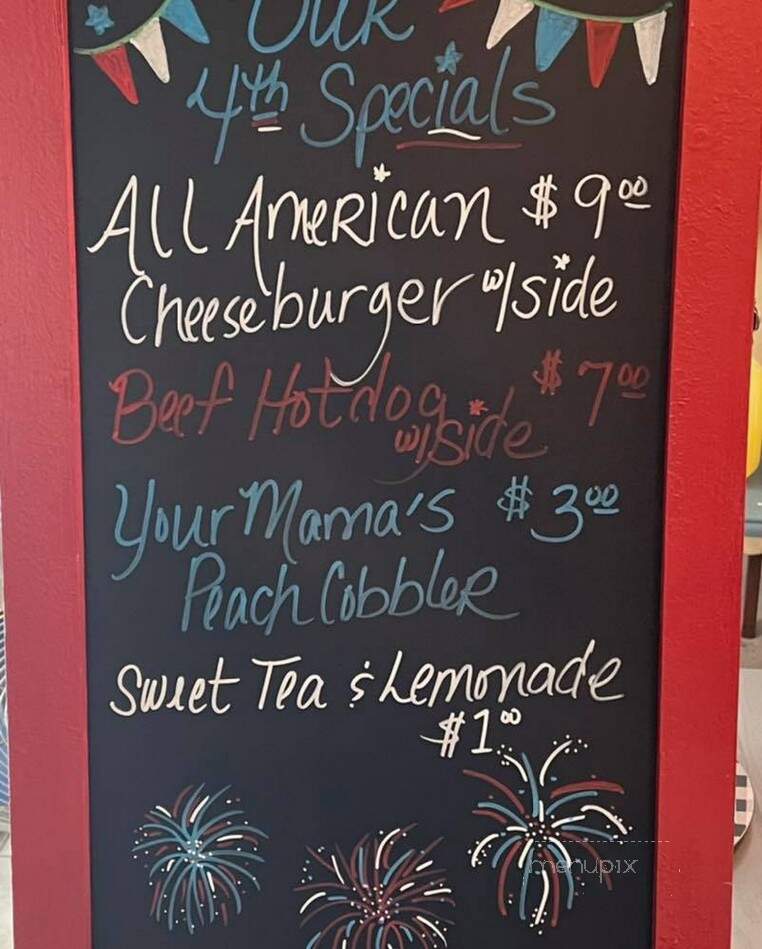 Our
4th Specials
All American $9.00
Cheeseburger w/side
Beef Hotdog $7.00
w/side
Your Mama's $3.00
Peach Cobbler
Sweet Tea & Lemonade
$1.00
menupix